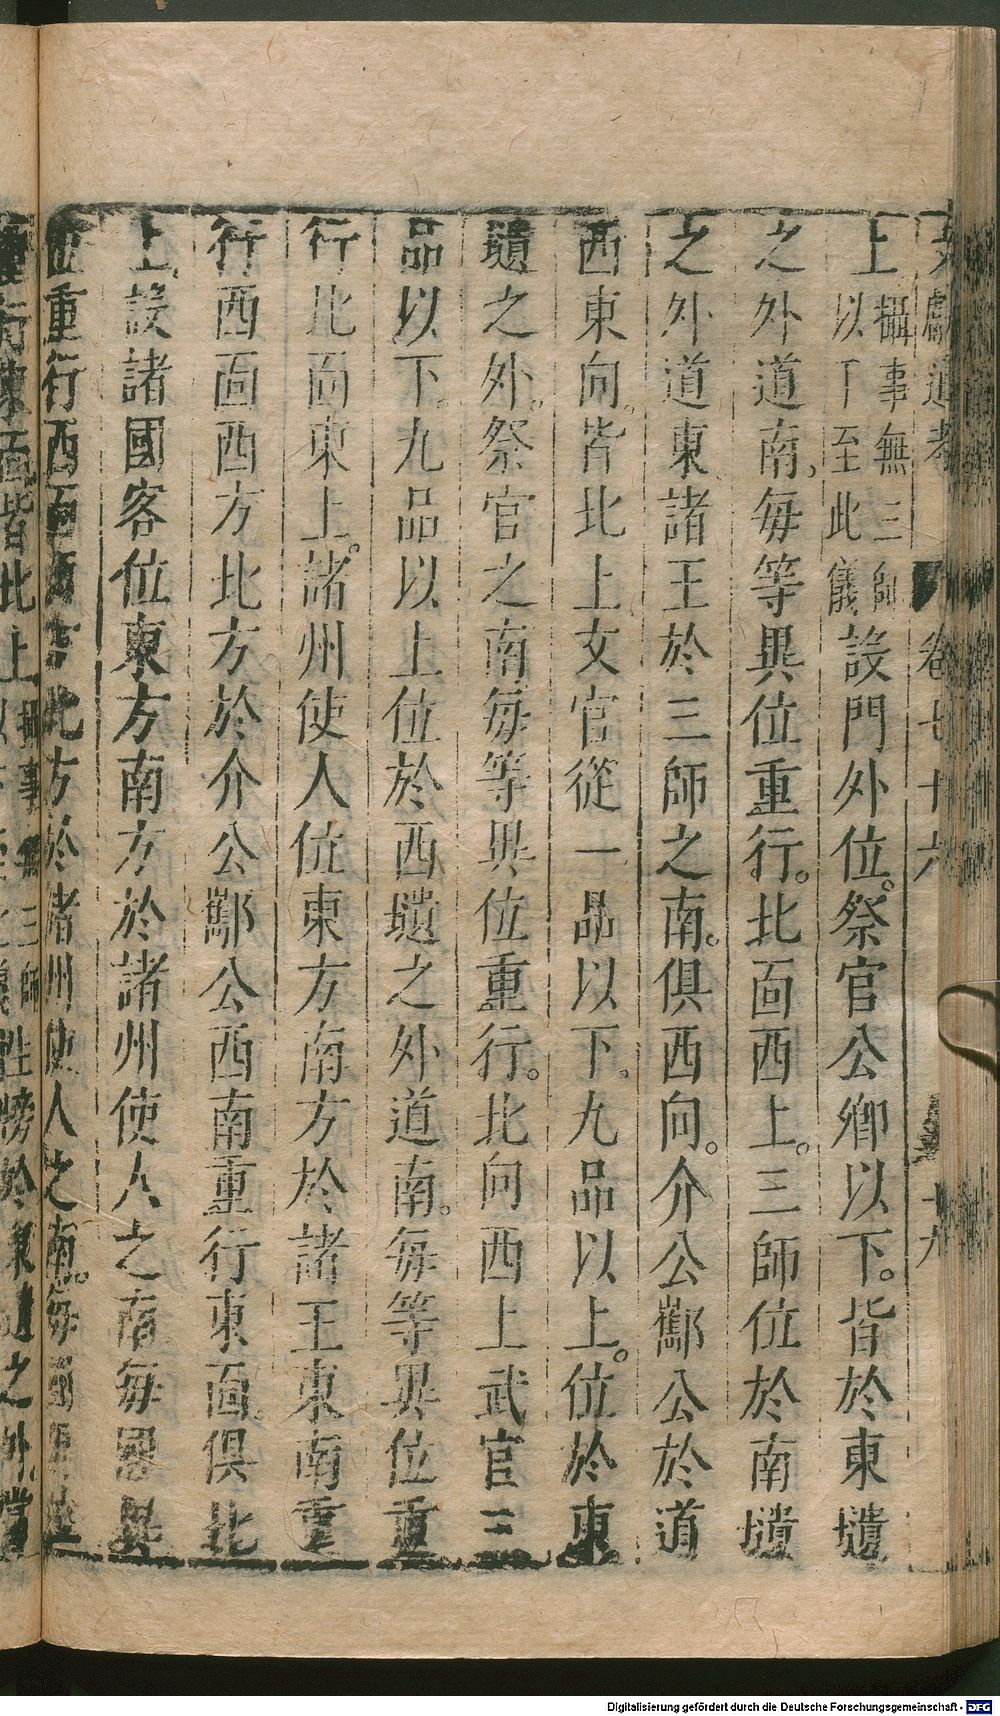 文獻通考 卷七十六 十九
上攝事無三師以下至此儀設門外位祭官公卿以下皆於東壝
之外道南每等異位重行北面西上三師位於南壝
之外道東諸王於三師之南俱西向介公酅公於道
西東向皆北上文官從一品以下九品以上位於東
壝之外祭官之南每等異位重行北向西上武官三
品以下九品以上位於西壝之外道南每等異位重
行北面東上諸州使人位東方南方於諸王東南重
行西面西方北方於介公酅公西南重行東面俱北
上設諸國客位東方南方於諸州使人之南每國異
位重行西面西方北方於諸州使人之南每國異位
重行東面皆北上攝事無三師 牲牓於東壝之外當
Digitalisierung gefördert durch die Deutsche Forschungsgemeinschaft - DFG